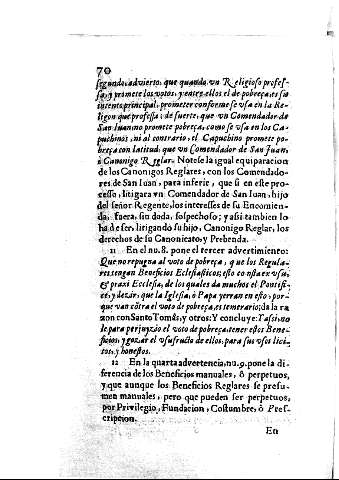 70
segundo, advierto, que quando vn Religioso profes-
sa, y promete los votos, y entre ellos el de pobreça, es su
intento principal, prometer conforme se vsa en la Re-
ligon que professa: de suerte, que vn Comendador de
San Iuan no promete pobreça, como se vsa en los Ca-
puchinos, ni al contrario, el Capuchino promete po-
breça con latitud, que vn Comendador de San Juan,
ò Canonigo Reglar. Notese la igual equiparacion
de los Canonigos Reglares, con los Comendado-
res de San Iuan, para inferir, que si en este pro-
cesso, litigara vn Comendador de San Iuan, hijo
del señor Regente, los interesses de su Encomien-
da, fuera, sin duda, sospechoso; y assi tambien lo
ha de ser, litigando su hijo, Canonigo Reglar, los
derechos de su Canonicato, y Prebenda.
11 En el nu.8. pone el tercer advertimiento:
Que no repugna al voto de pobreça, que los Regula-
res tengan Beneficios Eclesiasticos; esto consta ex vsu,
& praxi Ecclesiæ, de los quales da muchos el Pontifi-
ce, y dezir, que la Iglesia, ò Papa yerran en esto, por-
que van côtra el voto de pobreça, es temerario; da la ra
zon con Santo Tomàs, y otros: Y concluye: Y assi, no
le para perjuyzio el voto de pobreça, tener estos Bene-
ficios, y gozar el vsufruto de ellos, para sus vsos lici-
tos, y honestos.
12 En la quarta advertencia, nu.9. pone la di-
ferencia de los Beneficios manuales, ò perpetuos,
y que aunque los Beneficios Reglares se presu-
men manuales, pero que pueden ser perpetuos,
por Privilegio, Fundacion, Costumbre, ò Pres-
cripcion.
En